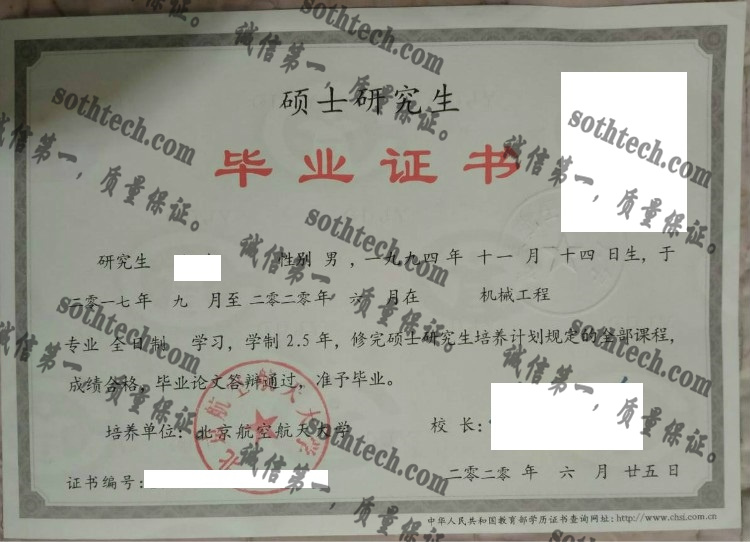 硕士研究生
毕业证书
研究生 性别 男 ，一九九四年 十一 月 二十四 日生，于
二零一七年 九 月至 二零二零年 六 月在 机械工程
专业 全日制 学习，学制 2.5 年，修完硕士研究生培养计划规定的全部课程，
成绩合格，毕业论文答辩通过，准予毕业。
培养单位：北京航空航天大学 校 长：
北京航空航天大学
证书编号： 二零二零 年 六 月 廿五 日
中华人民共和国教育部学历证书查询网址：http://www.chsi.com.cn
sothtech.com
诚信第一，质量保证。
sothtech.com
诚信第一，质量保证。
sothtech.com
诚信第一，质量保证。
sothtech.com
诚信第一，质量保证。
sothtech.com
诚信第一，质量保证。
sothtech.com
诚信第一，质量保证。
sothtech.com
诚信第一，质量保证。
sothtech.com
诚信第一，质量保证。